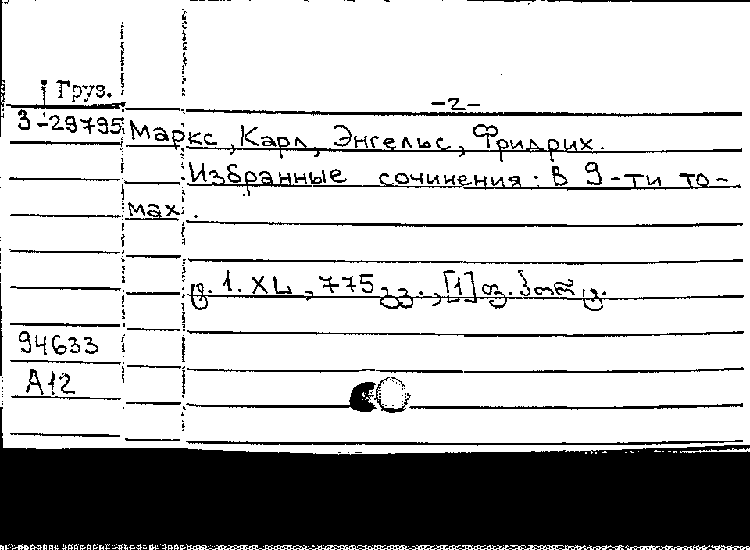 Груз.
-2-
3-29795 Маркс, Карл, Энгельс, Фридрих.
Избранные сочинения: В 9-ти то-
мах.
ტ. 1. XL, 775 გვ., [1] ფ. პორტრ.
94633
А12